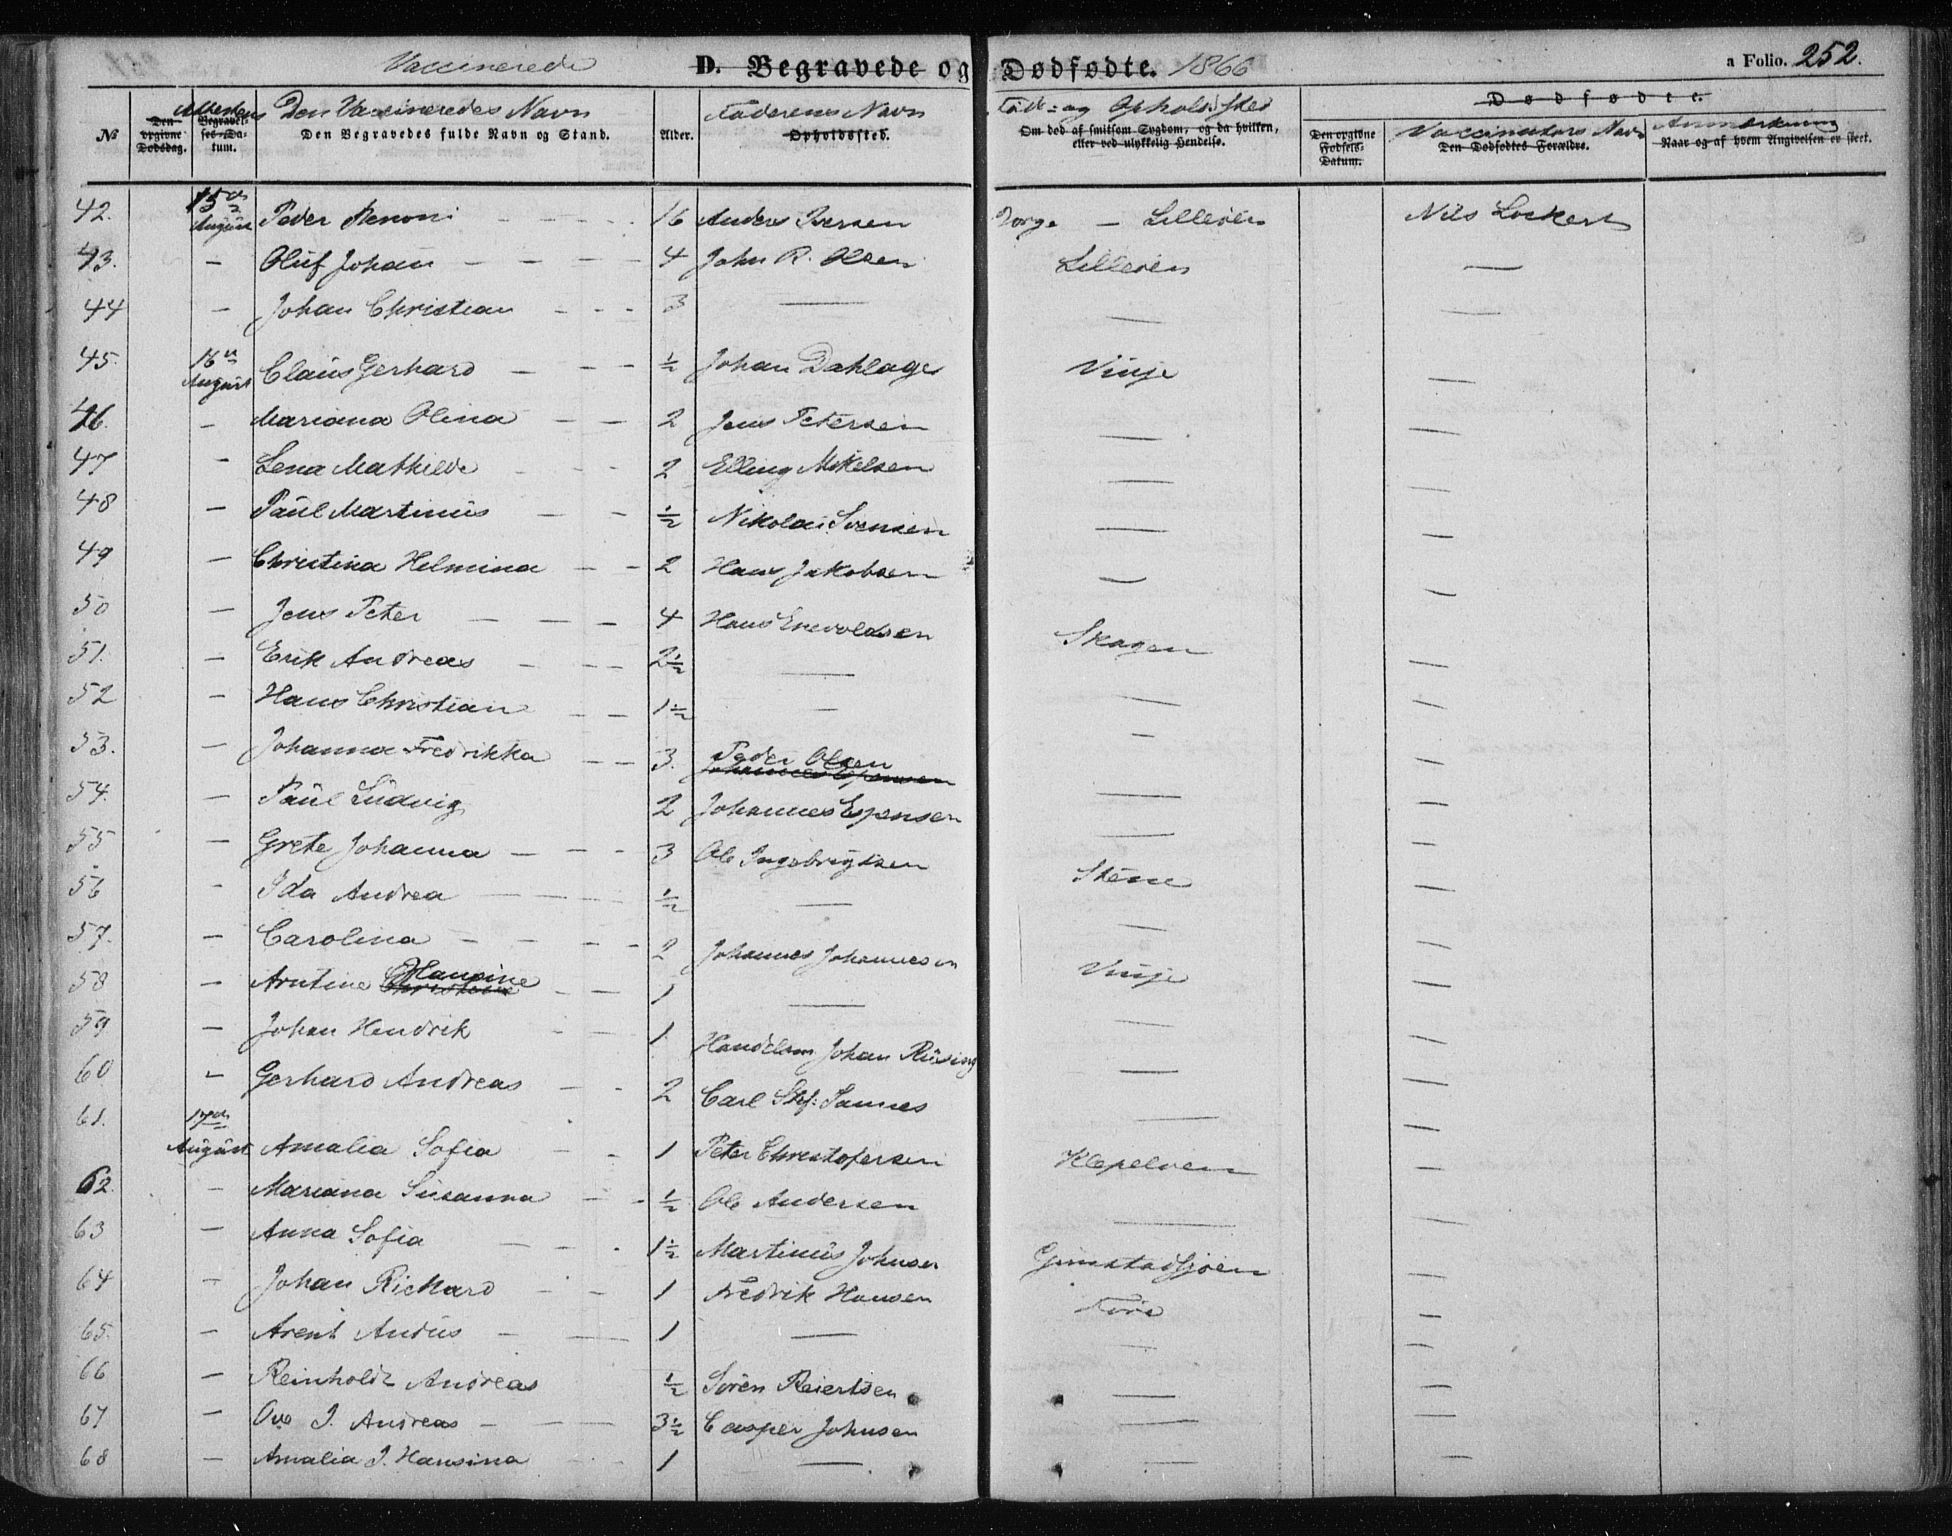 Vaccinerede D. Begravede og Dødfødte. 1866 a Folio. 252.
No Den opgivne Dødsdag. Attestens Begravelses-Datum. Den Vaccineredes Navn Den Begravedes fulde Navn og Stand. Alder. Faderens Navn Opholdssted. Føde- og Opholdssted Om død af smitsom Sygdom, og da hvilken, eller ved ulykkelig Hendelse. Dødfødte. Den opgivne Fødsels-Datum. Vaccinators Navn Den Dødfødtes Forældre. Anmærkning Naar og af hvem Angivelsen er skeet.
42. 15de August Peder Benoni - - - - 16 Anders Iversen Borge - Lilleøen Nils Lockert
43. - Oluf Johan - - - - 4 John R. Olsen Lilleøen —
44 - Johan Christian - - - 3 — — —
45. 16de August Claus Gerhard - - - ½ Johan Dahlager Vinje —
46. - Mariana Olina - - 2 Jens Petersen — —
47 - Lena Mathilde - - - 2 Elling Mikelsen — —
48 - Paul Martinus - - ½ Nikolai Svensen — —
49 - Christina Helmina - - 2 Hans Jakobsen — —
50 - Jens Peter - - - 4 Hans Enevoldsen Skagen —
51. - Erik Andreas - - - 2½ — — —
52 - Hans Christian - - 1½ — — —
53. - Johanna Fredrikka - - 3. Peder Olsen — —
Johannes Espensen
54. - Paul Ludvig 2 Johannes Espensen — —
55 - Grete Johanna - - - 3 Ole Ingebrigtsen Stene —
56 - Ida Andrea - - ½ — — —
57. - Carolina - - - - 2 Johannes Johannesen Vinje —
58 - Arntine Christine Hansine - - 1 — — —
59 - Johan Hendrik - - 1 Handelsm Johan Rüsing — —
60 - Gerhard Andreas - - 2 Carl Stf: Samnes — —
61. 17de August Amalia Sofia - - 1 Peter Christofersen Klepelven —
62. - Mariana Susanna - - ½ Ole Andersen — —
63 - Anna Sofia - - - 1½ Martinus Johnsen Gimstadsjøen —
64 - Johan Richard - - 1 Fredrik Hansen Føre —
65. - Arent Andus - - 1 — — —
66 - Reinholdt Andreas ½ Søren Reiertsen — —
67 - Ove J. Andreas - - 3½ Casper Johnsen — —
68 - Amalia J. Hansina - - 1 — — —